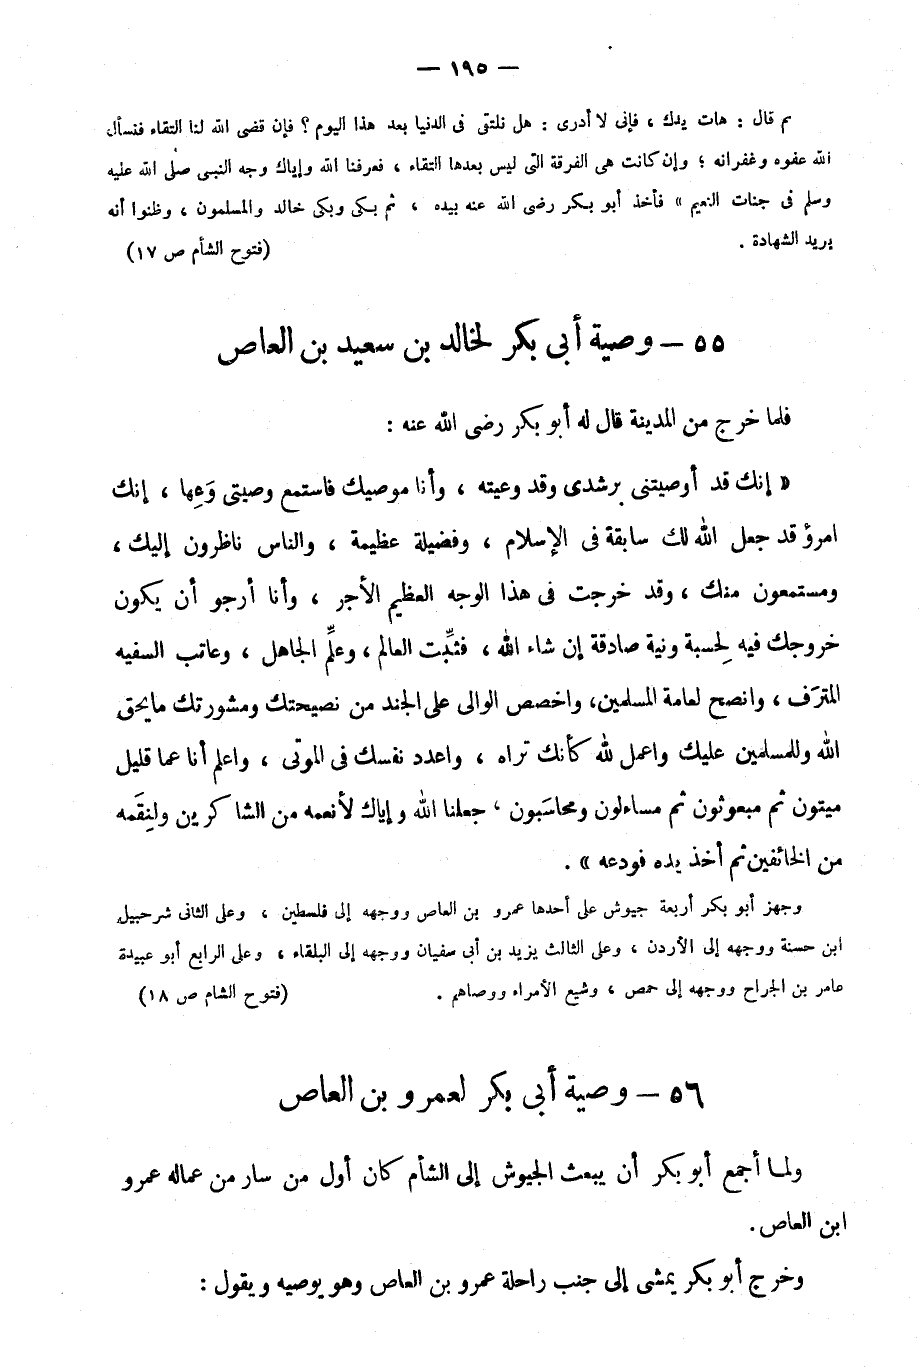 — ١٩٥ —
ثم قال : هات يدك ، فإنى لا أدرى : هل نلتقى فى الدنيا بعد هذا اليوم ؟ فإن قضى الله لنا التقاء فنسأل
الله عفوه وغفرانه ؛ وإن كانت هى الفرقة التى ليس بعدها التقاء ، فعرفنا الله وإياك وجه النبى صلى الله عليه
وسلم فى جنات النعيم » فأخذ أبو بكر رضى الله عنه بيده ، ثم بكى وبكى خالد والمسلمون ، وظنوا أنه
يريد الشهادة . (فتوح الشأم ص ١٧)
٥٥ – وصية أبى بكر لخالد بن سعيد بن العاص
فلما خرج من المدينة قال له أبو بكر رضى الله عنه :
« إنك قد أوصيتنى برشدى وقد وعيته ، وأنا موصيك فاستمع وصيتى وَعِها ، إنك
امرؤ قد جعل الله لك سابقة فى الإسلام ، وفضيلة عظيمة ، والناس ناظرون إليك ،
ومستمعون منك ، وقد خرجت فى هذا الوجه العظيم الأجر ، وأنا أرجو أن يكون
خروجك فيه لِحسبة ونية صادقة إن شاء الله ، فثبِّت العالم ، وعلِّم الجاهل ، وعاتب السفيه
المترَف ، وانصح لعامة المسلمين، واخصص الوالى على الجند من نصيحتك ومشورتك مايحق
الله وللمسلمين عليك واعمل لله كأنك تراه ، واعدد نفسك فى الموتى ، واعلم أنا عما قليل
ميتون ثم مبعوثون ثم مساءلون ومحاسَبون ، جعلنا الله وإياك لأنعمه من الشاكرين ولنِقَمه
من الخائفين ثم أخذ يده فودعه » .
وجهز أبو بكر أربعة جيوش على أحدها عمرو بن العاص ووجهه إلى فلسطين ، وعلى الثانى شرحبيل
ابن حسنة ووجهه إلى الأردن ، وعلى الثالث يزيد بن أبى سفيان ووجهه إلى البلقاء ، وعلى الرابع أبو عبيدة
عامر بن الجراح ووجهه إلى حمص ، وشيع الأمراء ووصاهم . (فتوح الشام ص ١٨)
٥٦ – وصية أبى بكر لعمرو بن العاص
ولما أجمع أبو بكر أن يبعث الجيوش إلى الشأم كان أول من سار من عماله عمرو
ابن العاص .
وخرج أبو بكر يمشى إلى جنب راحلة عمرو بن العاص وهو يوصيه ويقول :